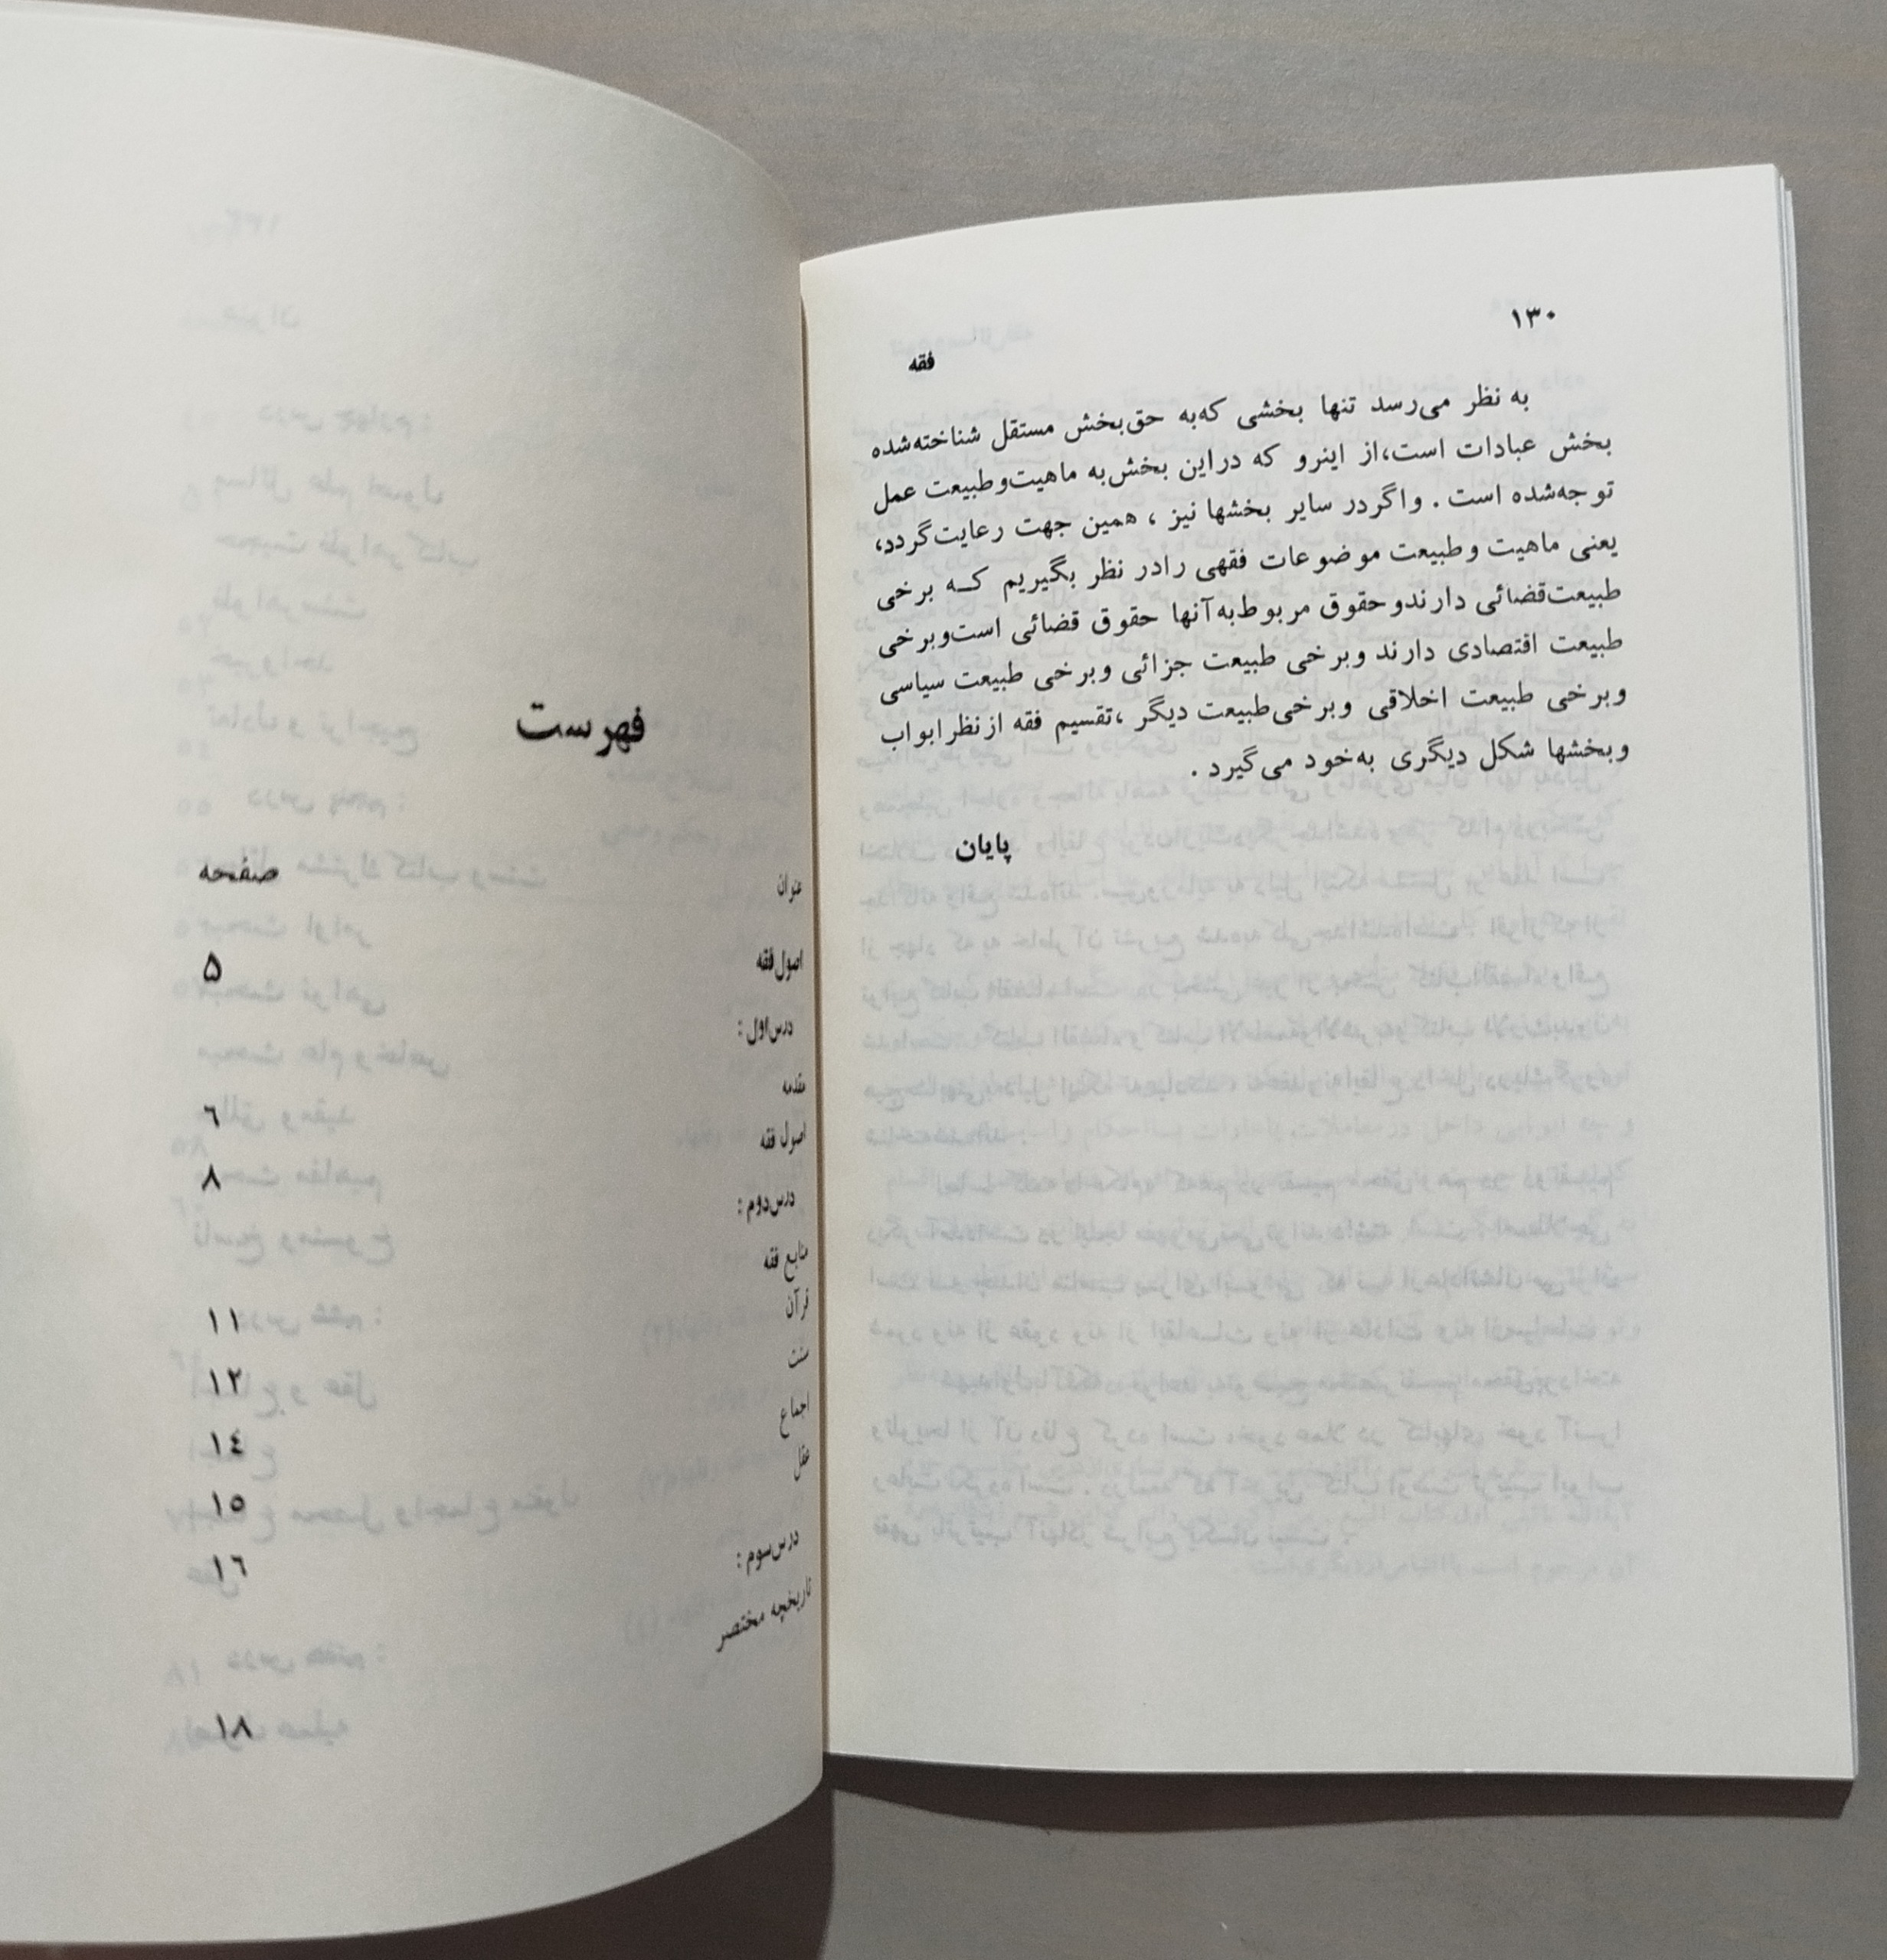 ۱۳۰
فقه
به نظر می‌رسد تنها بخشی که‌به حق‌بخش مستقل شناخته‌شده
بخش عبادات است،از اینرو که دراین بخش‌به ماهیت‌وطبیعت عمل
توجه‌شده است . واگردر سایر بخشها نیز ، همین جهت رعایت‌گردد،
یعنی ماهیت وطبیعت موضوعات فقهی رادر نظر بگیریم کـه برخی
طبیعت‌قضائی دارندوحقوق مربوط‌به‌آنها حقوق قضائی است‌وبرخی
طبیعت اقتصادی دارند وبرخی طبیعت جزائی وبرخی طبیعت سیاسی
وبرخی طبیعت اخلاقی وبرخی‌طبیعت دیگر ،تقسیم فقه ازنظرابواب
وبخشها شکل دیگری به‌خود می‌گیرد .
پایان
فهرست
عنوان صفحه
اصول‌فقه ۵
درس‌اول :
مقدمه ۶
اصول فقه ۸
درس‌دوم :
منابع فقه ۱۱
قرآن ۱۲
سنت ۱۴
اجماع ۱۵
عقل ۱۶
درس‌سوم :
تاریخچه مختصر ۱۸